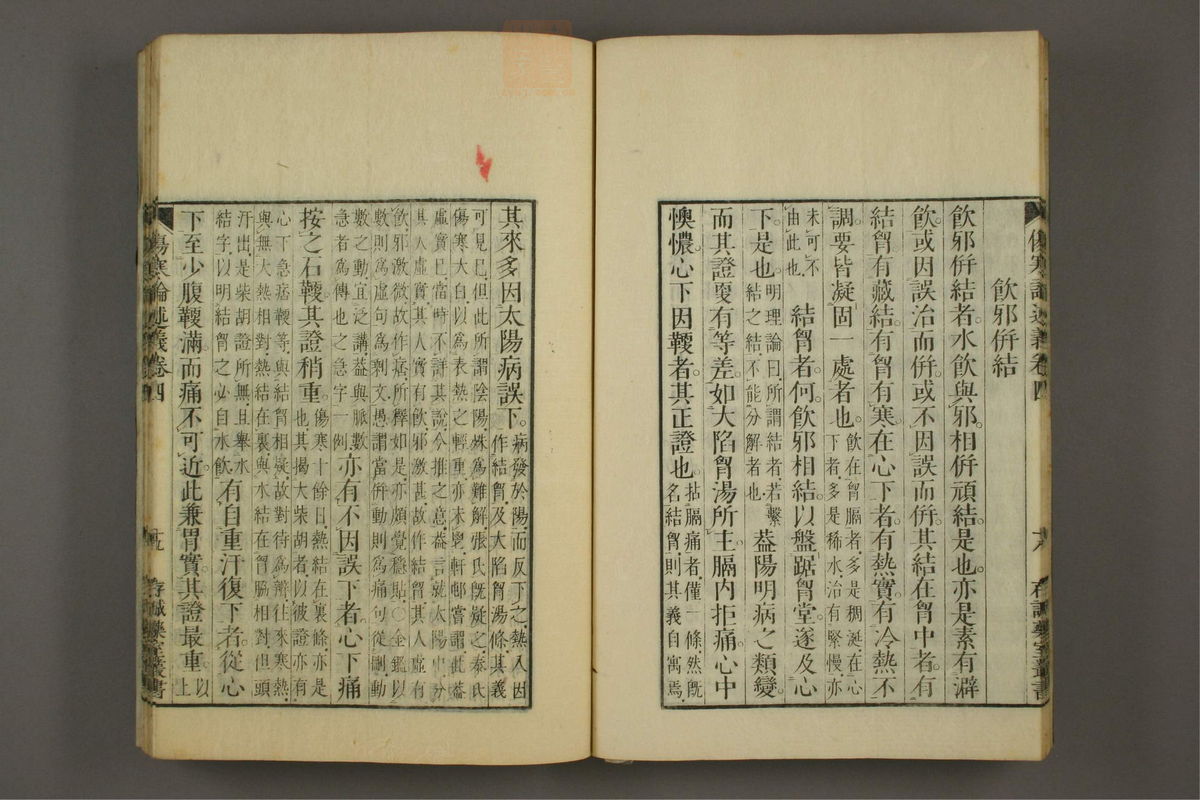 飲邪併結
飲邪併結者。水飲與邪。相併頑結。是也。亦是素有澼
飲。或因誤治而併。或不因誤而併。其結在胷中者。有
結胷。有藏結。有胷有寒。在心下者。有熱實。有冷熱不
調。要皆凝固一處者也。飲在胷膈者、多是稠涎、在心
下者、多是稀水、治有緊慢、亦
未可不
由此也、
結胷者。何。飲邪相結。以盤踞胷堂。遂及心
下。是也。明理論曰、所謂結者、若繫
結之結、不能分解者也、
葢陽明病之類變。
而其證更有等差。如大陷胷湯所主。膈内拒痛。心中
懊憹。心下因鞕者。其正證也。拈膈痛者、僅一條、然既
名結胷、則其義自寓焉、
傷寒論述義卷四
存誠藥室叢書
其來多因太陽病誤下。病發於陽、而反下之、熱入因
作結胷、及大陷胷湯條、其義
可見已、但此所謂陰陽、殊爲難解、張氏既疑之、秦氏
傷寒大白、以爲表熱之輕重、亦未、軒邨嘗謂、此葢
虛實已、當時不詳其說、今推之意、葢言就太陽中、分
其人虛實、其人實有飲、邪激甚、故作結胷、其人虛有
飲、邪激微、故作痞、所釋如是、亦頗覺穩貼、○金鑑、以
數則爲虛句、爲剩文、愚謂當併動則爲痛句從刪、動
數之動、宜泛講、葢與脈數
急者、爲傳也之急字一例、
亦有不因誤下者。心下痛。
按之石鞕。其證稍重。傷寒十餘日、熱結在裏條、亦是
也、其揭大柴胡者、以彼證亦有
心下急痞鞕等、與結胷相疑、故對待爲辨、往來寒熱、
與無大熱相對、熱結在裏、與水結在胷脇相對、但頭
汗出、是柴胡證所無、且舉水
結字、以明結胷之必自水飲、
有自重汗復下者。從心
下至少腹鞕滿。而痛不可近。此兼胃實。其證最重。以
上
傷寒論述義卷四
存誠藥室叢書